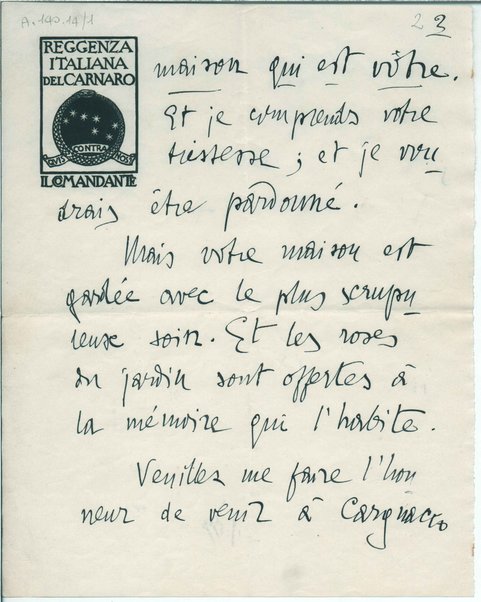 A.140.14/1
2 3
REGGENZA
ITALIANA
DEL CARNARO
QVIS CONTRA NOS
IL COMANDANTE
maison qui est vôtre.
Et je comprends votre
tristesse ; et je vou
drais être pardonné.
Mais votre maison est
gardée avec le plus scrupu
leux soin. Et les roses
du jardin sont offertes à
la mémoire qui l'habite.
Veuillez me faire l'hon
neur de venir à Cargnacco